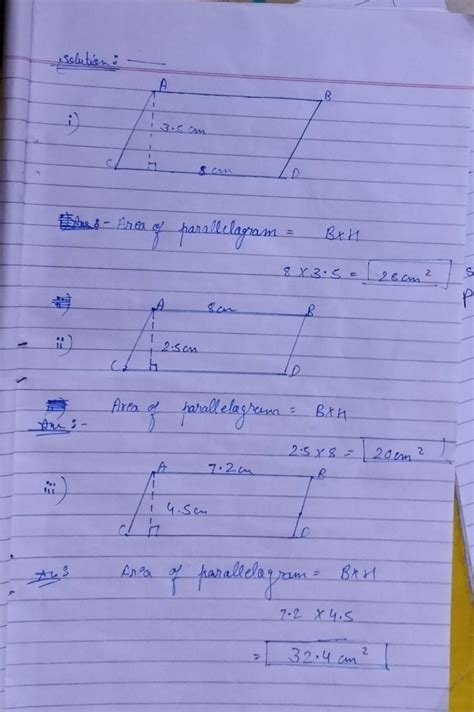 Solution:-
A
B
i)
3.5cm
C
8cm
D
Ans:- Area of parallelagram = B×H
8 × 3.5 = 28cm²
A
8cm
B
ii)
2.5cm
C
D
Area of parallelagram = B×H
Ans:-
2.5 × 8 = 20cm²
A
7.2cm
B
iii)
4.5cm
C
D
Ans: Area of parallelagram = B×H
7.2 × 4.5
= 32.4 cm²